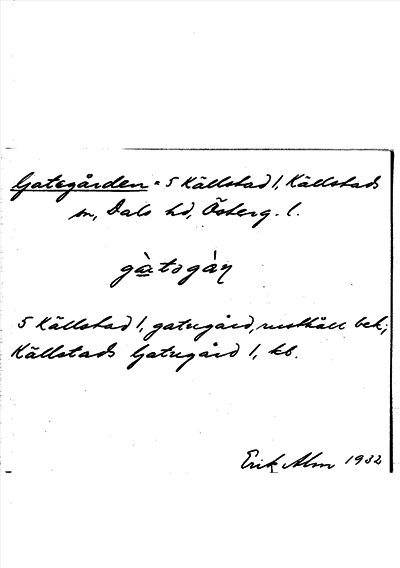 Gategården = 5 Källstad 1, Källstads
sn, Dals hd, Österg. l.
gàtəgàṇ
5 Källstad 1, gatugård, rusthåll bek;
Källstads Gatugård 1, kb.
Erik Alm 1932